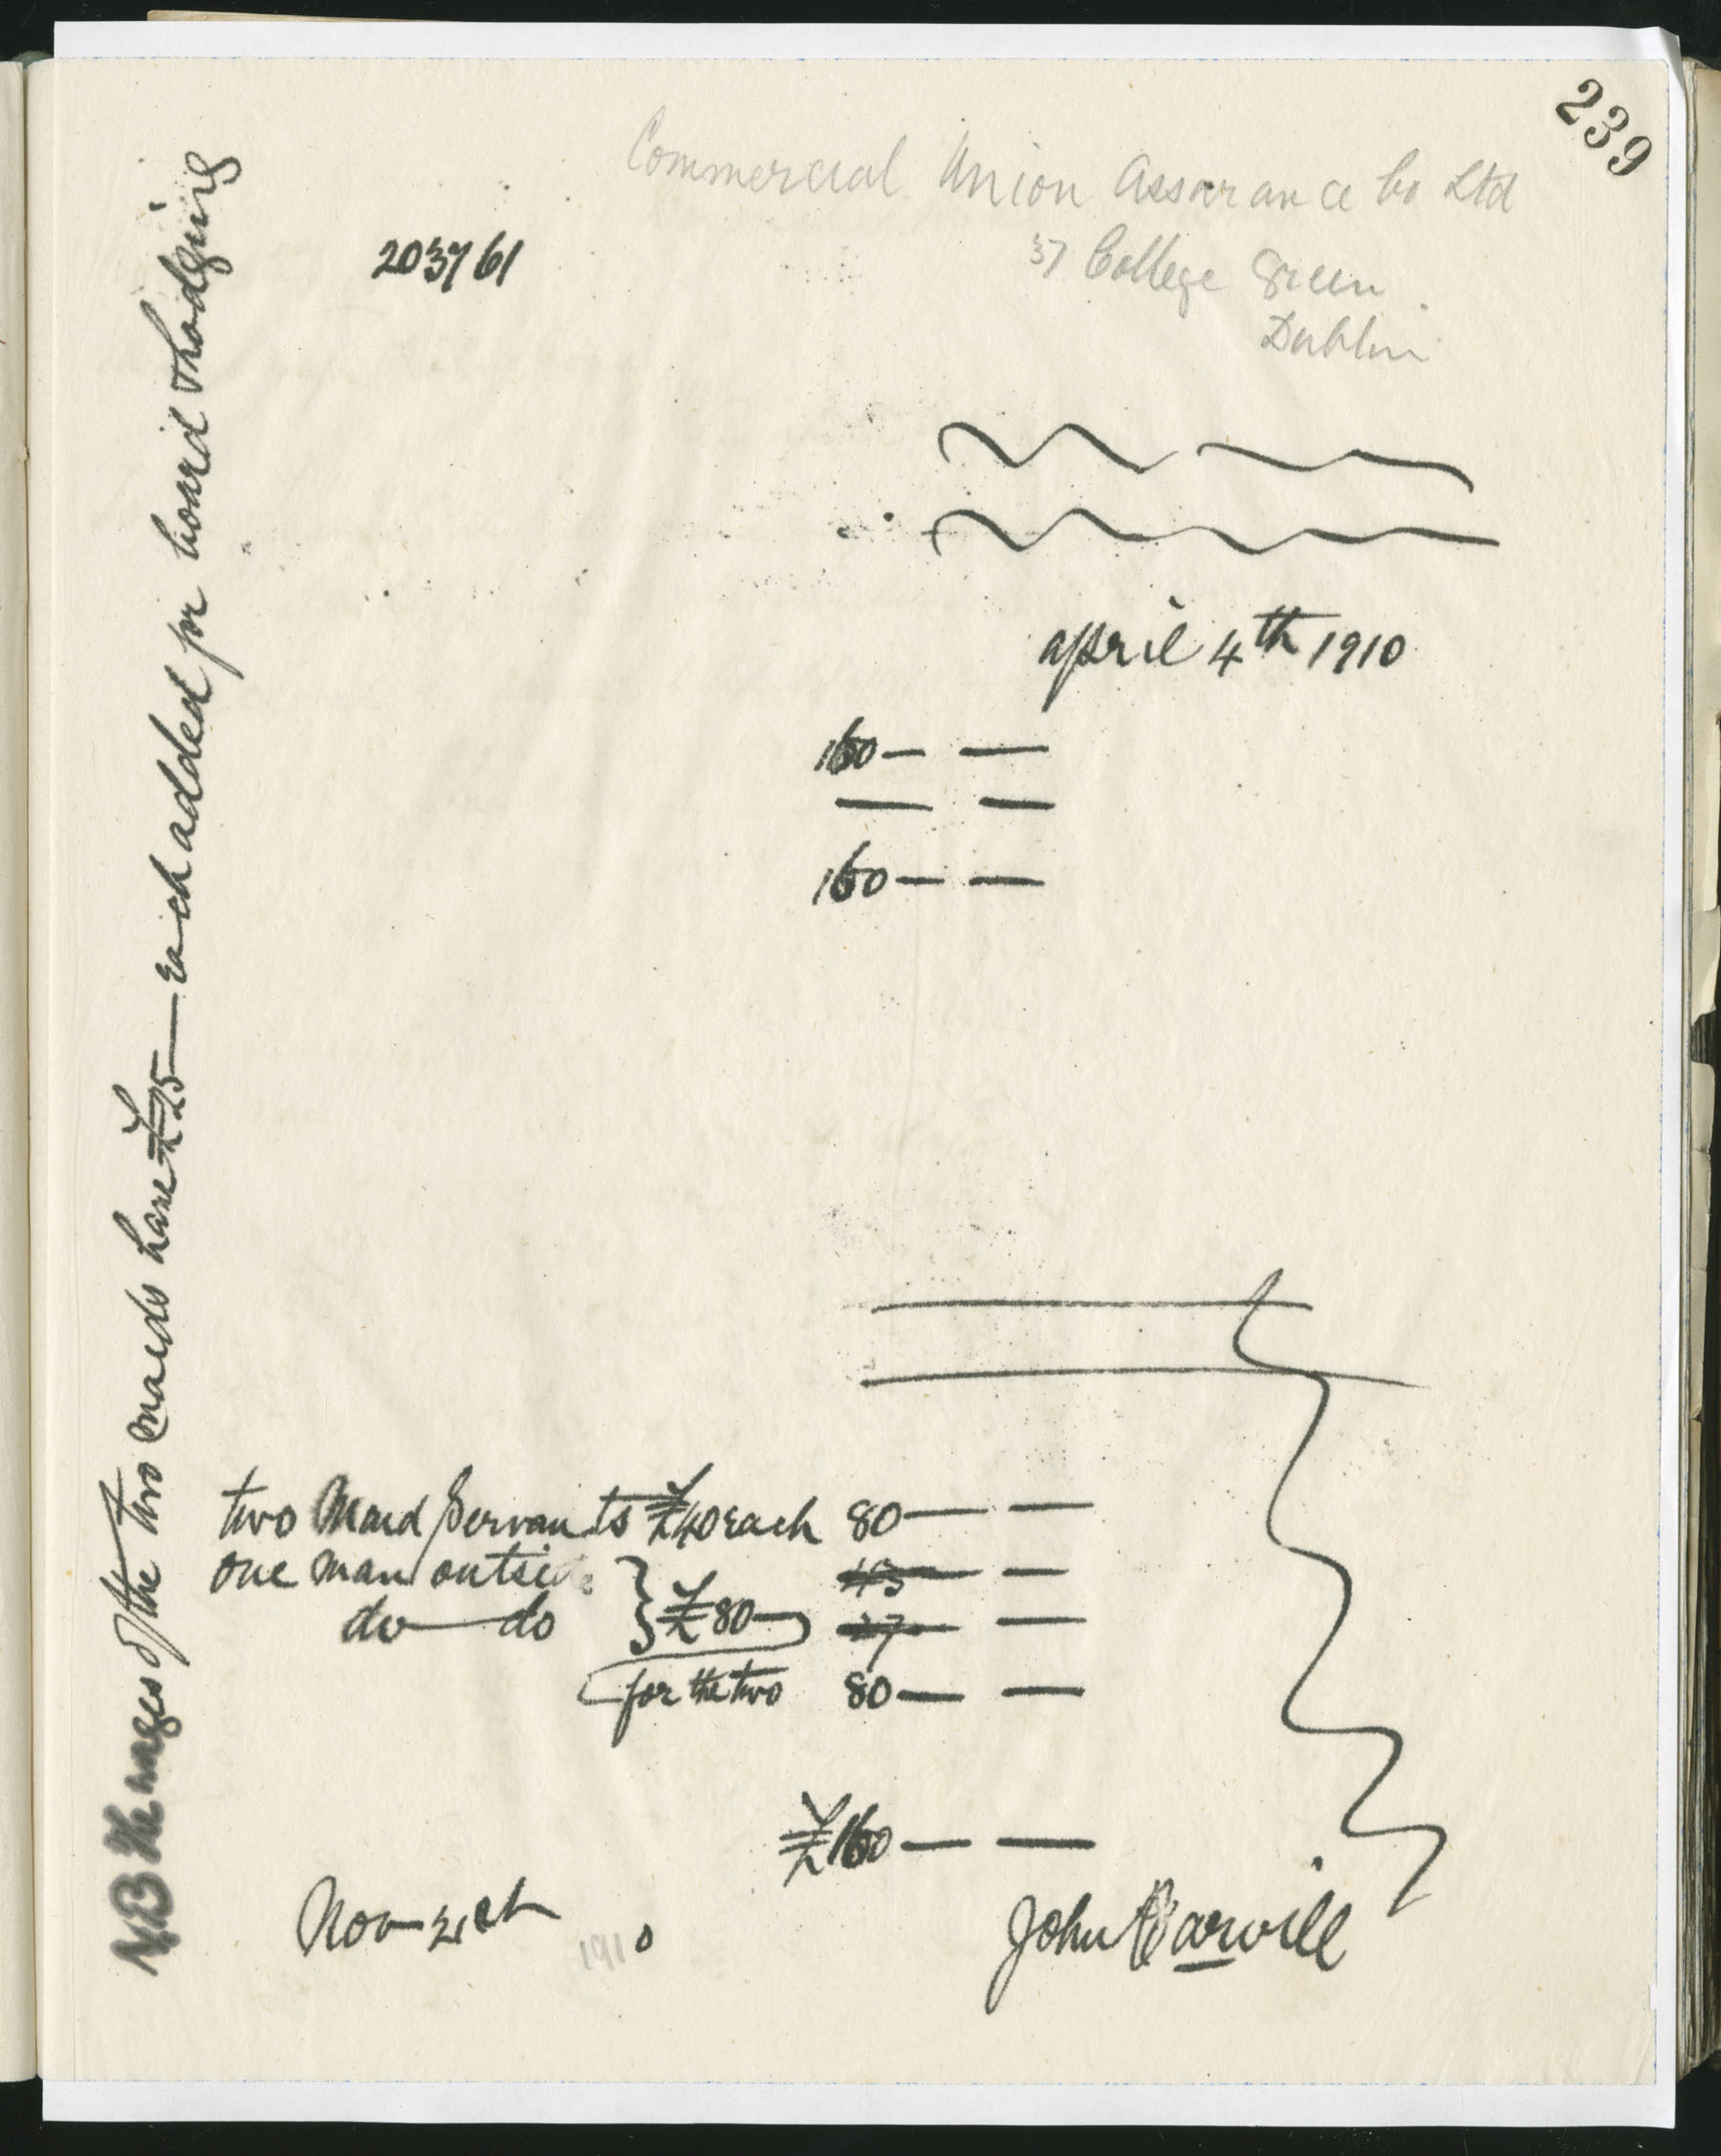 239
Commercial Union Assurance Co Ltd
37 College Green
Dublin
203761
april 4th 1910
160 — —
— —
160 — —
two Maid Servants £40 each 80 — —
one man outside — —
do — do £80 — —
for the two 80 — —
£160 — —
Nov 21st 1910
John Carvill
NB The wages of the two maids have £25 — each added for board & lodging